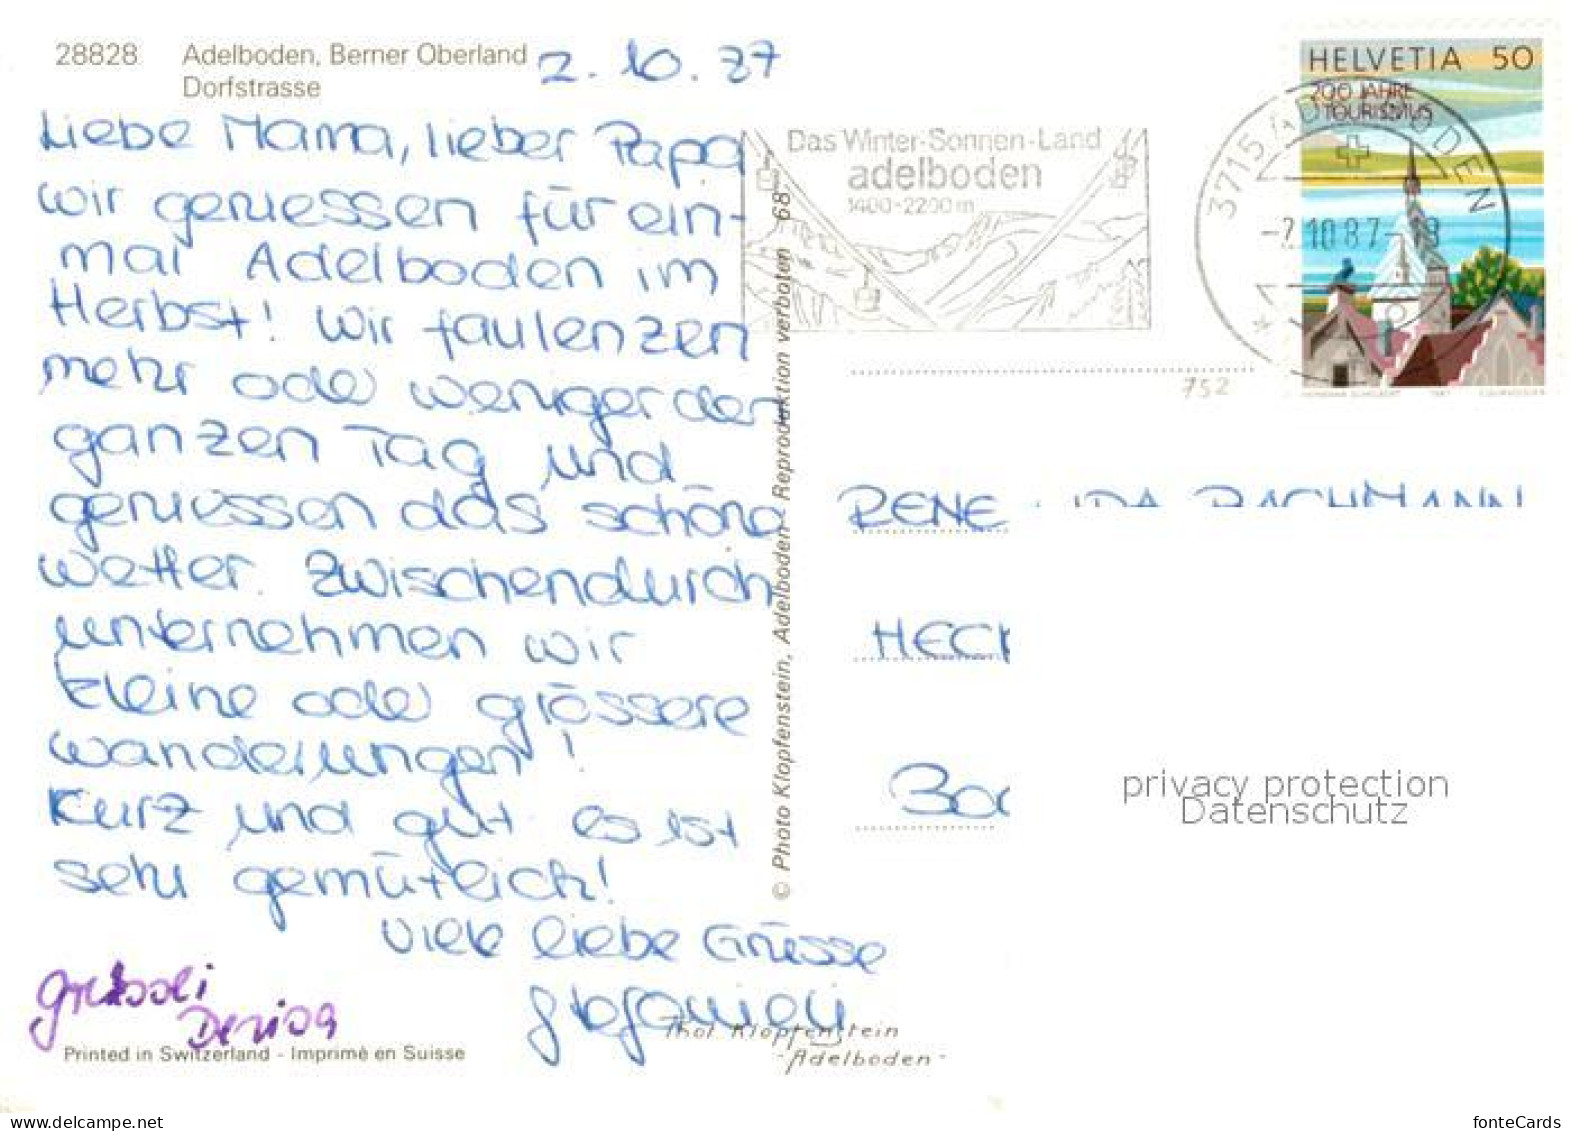 28828 Adelboden, Berner Oberland
Dorfstrasse
2. 10. 87
Liebe Mama, lieber Papa
wir geniessen für ein-
mal Adelboden im
Herbst! Wir faulenzen
mehr oder weniger den
ganzen Tag und
geniessen das schöne
Wetter. Zwischendurch
unternehmen wir
kleine oder grössere
Wanderungen!
Kurz und gut es ist
sehr gemütlich!
Viele liebe Grüsse
grüssli
Printed in Switzerland - Imprimé en Suisse
Phot. Klopfenstein
-Adelboden-
© Photo Klopfenstein, Adelboden Reproduktion verboten 68.
Das Winter-Sonnen-Land
adelboden
1400-2200 m
3715 ADELBODEN
-2.10.87-
HELVETIA 50
200 JAHRE
TOURISMUS
752
RENE
BACHMANN
privacy protection
Datenschutz
www.delcampe.net
fonteCards